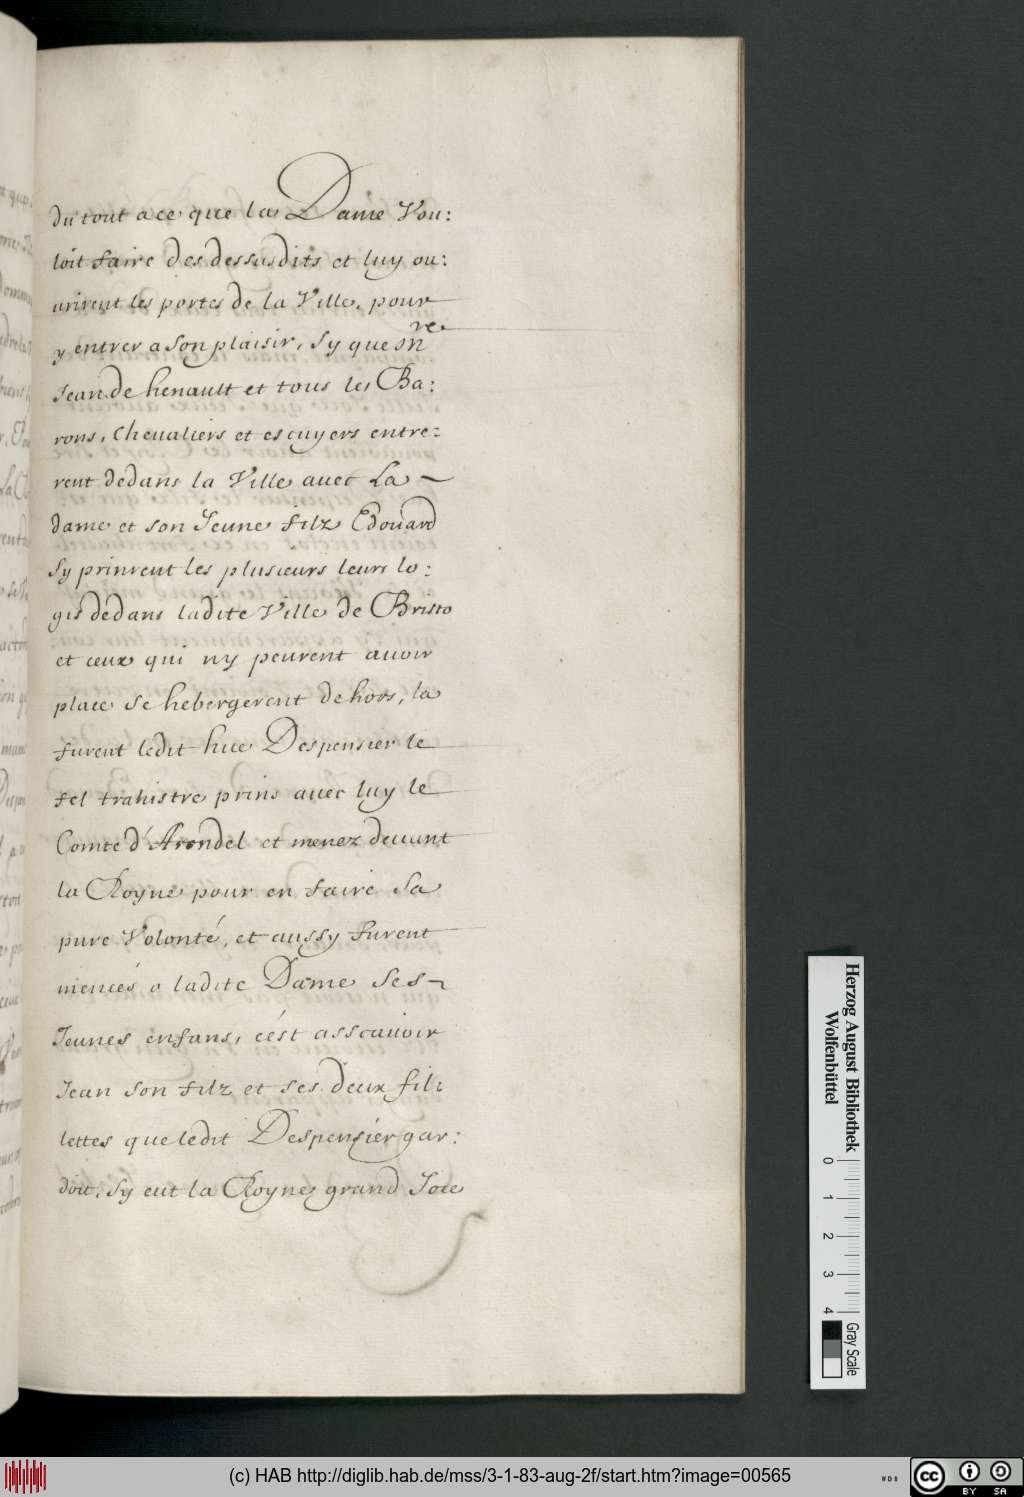 du tout a ce que la Dame Vou:
loit faire des dessusdits et luy ou:
urirent les portes de la Ville, pour
y entrer a son plaisir, Sy que Mre
Jean de henault et tous les Ba:
rons, Chevaliers et escuyers entre:
rent dedans la Ville avec La ~
dame et son Jeune filz Edouard
Sy prinrent les plusieurs leurs lo:
gis dedans ladite Ville de Bristo
et ceux qui ny peurent avoir
place se hebergerent dehors, la
furent ledit hue Despensier le
fel trahistre prins avec luy le
Comte d'Arondel et menez devant
la Royne pour en faire Sa
pure Volonté, et aussy furent
menées a ladite Dame Ses ~
Jeunes enfans, c'ést asscavoir
Jean son filz et ses deux fil:
lettes que ledit Despensier gar:
doit, Sy eut la Royne grand Joie
Herzog August Bibliothek
Wolfenbüttel
0 1 2 3 4
Gray Scale
(c) HAB http://diglib.hab.de/mss/3-1-83-aug-2f/start.htm?image=00565
cc BY SA